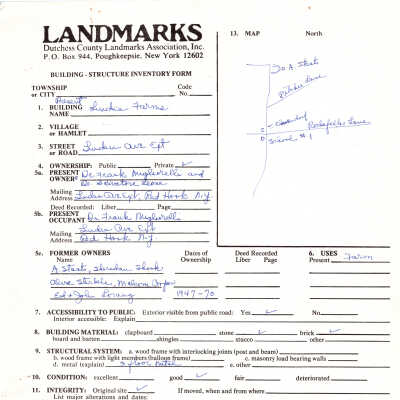 LANDMARKS
Dutchess County Landmarks Association, Inc.
P.O. Box 944, Poughkeepsie, New York 12602
BUILDING - STRUCTURE INVENTORY FORM
TOWNSHIP or CITY Code No.
1. Present BUILDING NAME Linden Farms
2. VILLAGE or HAMLET
3. STREET or ROAD Linden Ave Ext
4. OWNERSHIP: Public Private ✓
5a. PRESENT OWNER Dr. Frank Migliorelli
Dr. Salvatore
Mailing Address Linden Ave Ext, Red Hook N.Y.
Deed Recorded: Liber Page
5b. PRESENT OCCUPANT Dr Frank Migliorelli
Linden Ave Ext
Mailing Address Red Hook N.Y.
5c. FORMER OWNERS Name Dates of Ownership Deed Recorded Liber Page
A Staats,
Olive
1947-70
6. USES Present Farm
7. ACCESSIBILITY TO PUBLIC: Exterior visible from public road: Yes ✓ No
Interior accessible: Explain
8. BUILDING MATERIAL: clapboard stone ✓ brick ✓
board and batten shingles stucco other
9. STRUCTURAL SYSTEM: a. wood frame with interlocking joints (post and beam)
b. wood frame with light members (balloon frame) c. masonry load bearing walls
d. metal (explain) e. other
10. CONDITION: excellent good ✓ fair deteriorated
11. INTEGRITY: Original site ✓ If moved, when and from where
List major alterations and dates:
13. MAP North
To A Staats
Pitcher Lane
Rockefeller Lane
#1